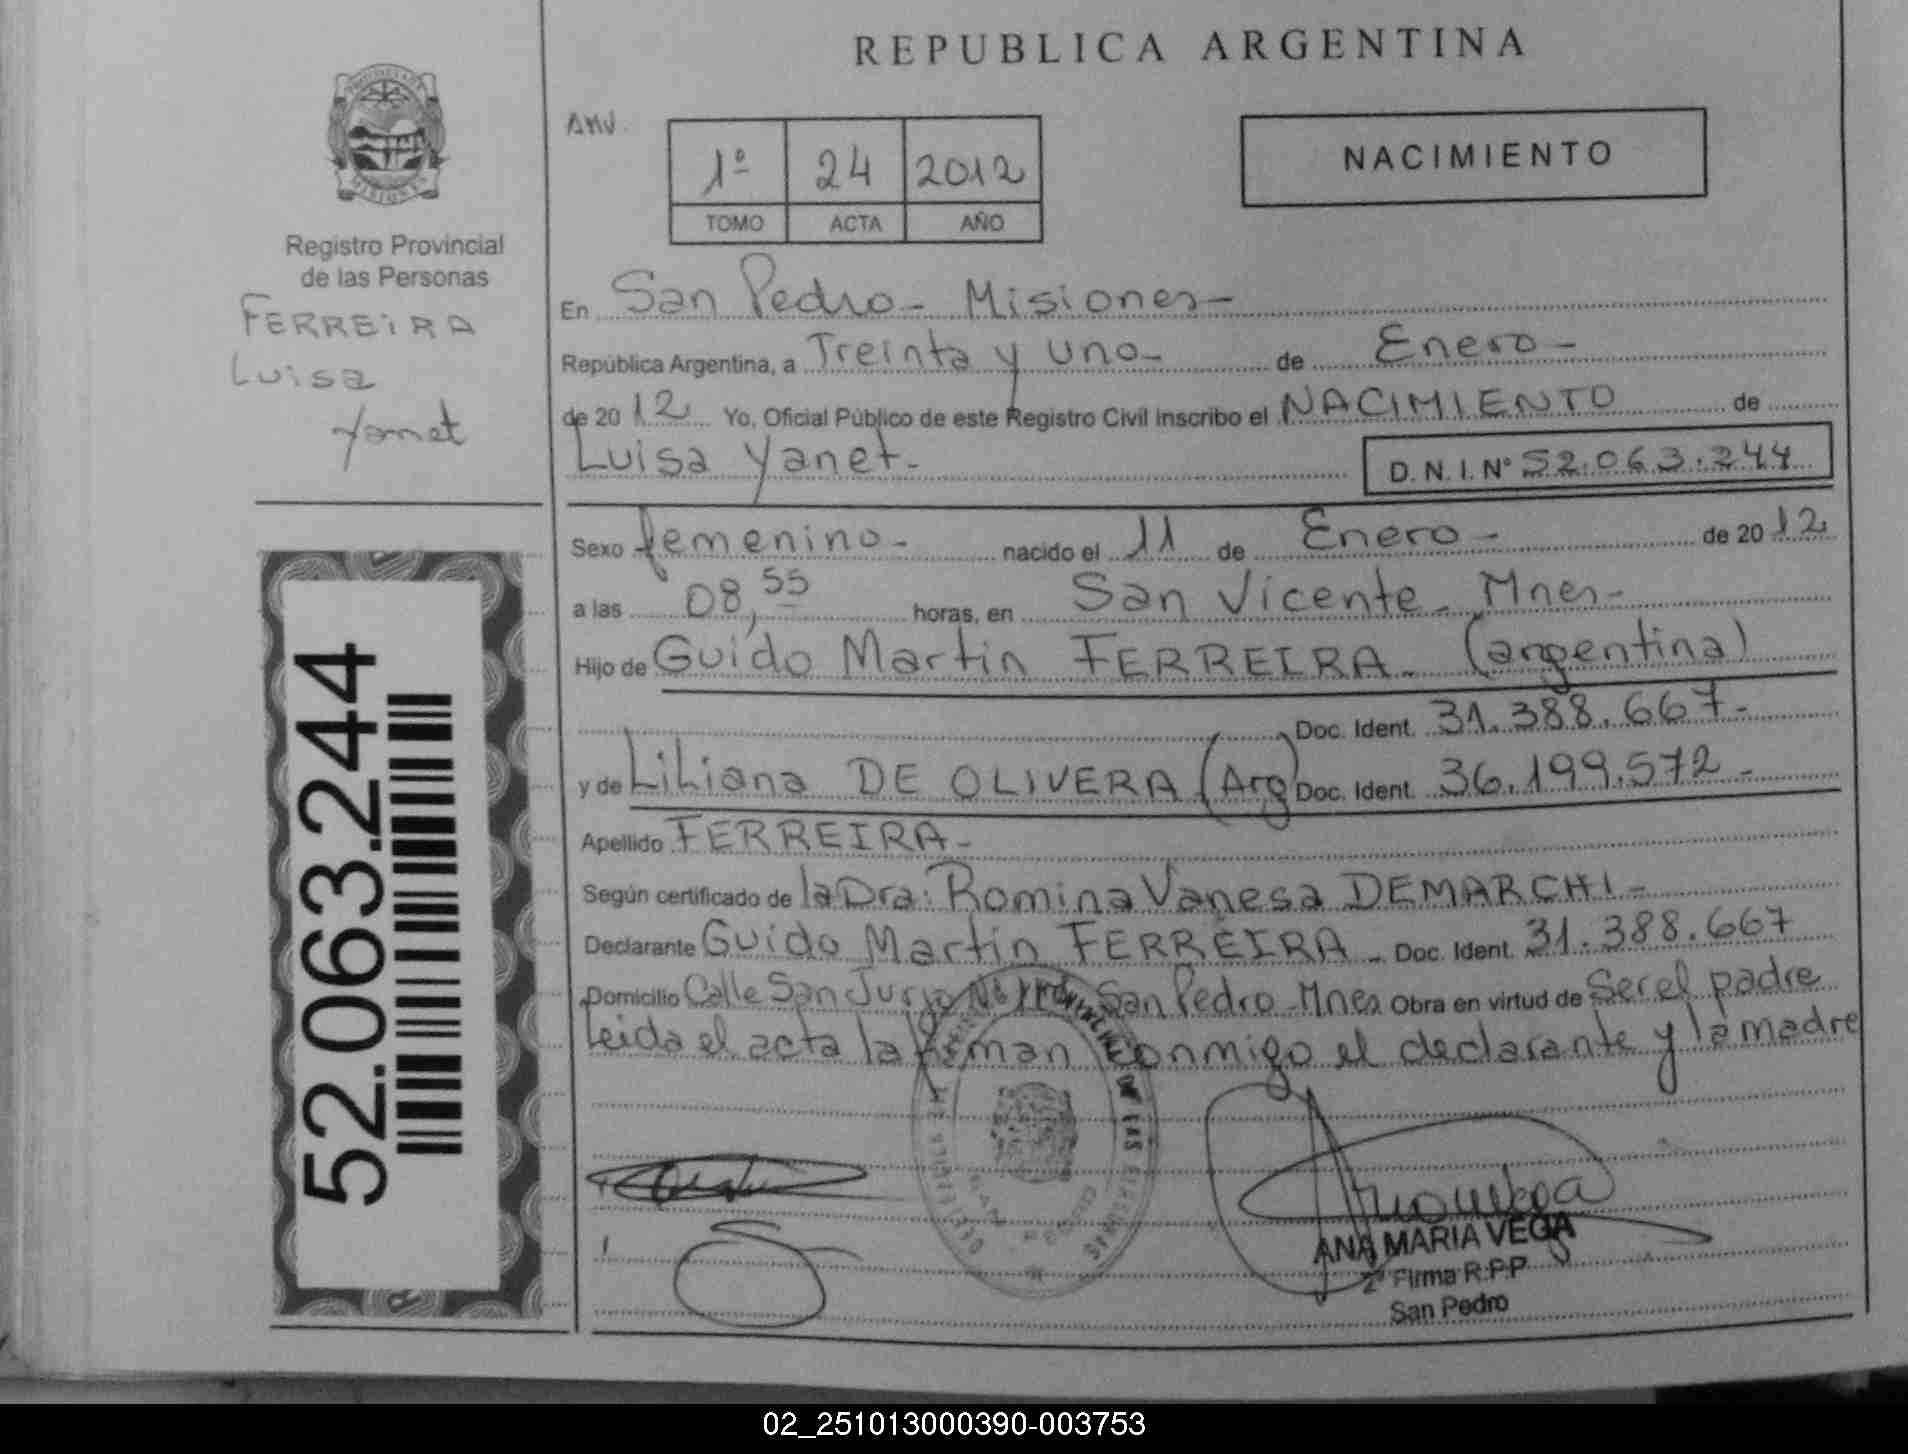 REPUBLICA ARGENTINA
NACIMIENTO
1º 24 2012
TOMO ACTA AÑO
Registro Provincial
de las Personas
FERREIRA
Luisa
Yanet
52.063.244
En San Pedro - Misiones -
República Argentina, a Treinta y uno - de Enero -
de 2012 Yo, Oficial Público de este Registro Civil inscribo el NACIMIENTO de
Luisa Yanet - D.N.I. Nº 52.063.244
Sexo femenino - nacido el 11 de Enero - de 2012
a las 08,55 horas, en San Vicente - Mnes -
Hijo de Guido Martin FERREIRA - (argentina)
Doc. Ident. 31.388.667 -
y de Liliana DE OLIVERA (Arg) Doc. Ident. 36.199.572 -
Apellido FERREIRA -
Según certificado de la Dra: Romina Vanesa DEMARCHI -
Declarante Guido Martin FERREIRA - Doc. Ident. 31.388.667
Domicilio Calle San Jurjo San Pedro - Mnes Obra en virtud de Ser el padre
Leida el acta la firman conmigo el declarante y la madre
ANA MARIA VEGA
2º Firma R.P.P
San Pedro
02_251013000390-003753